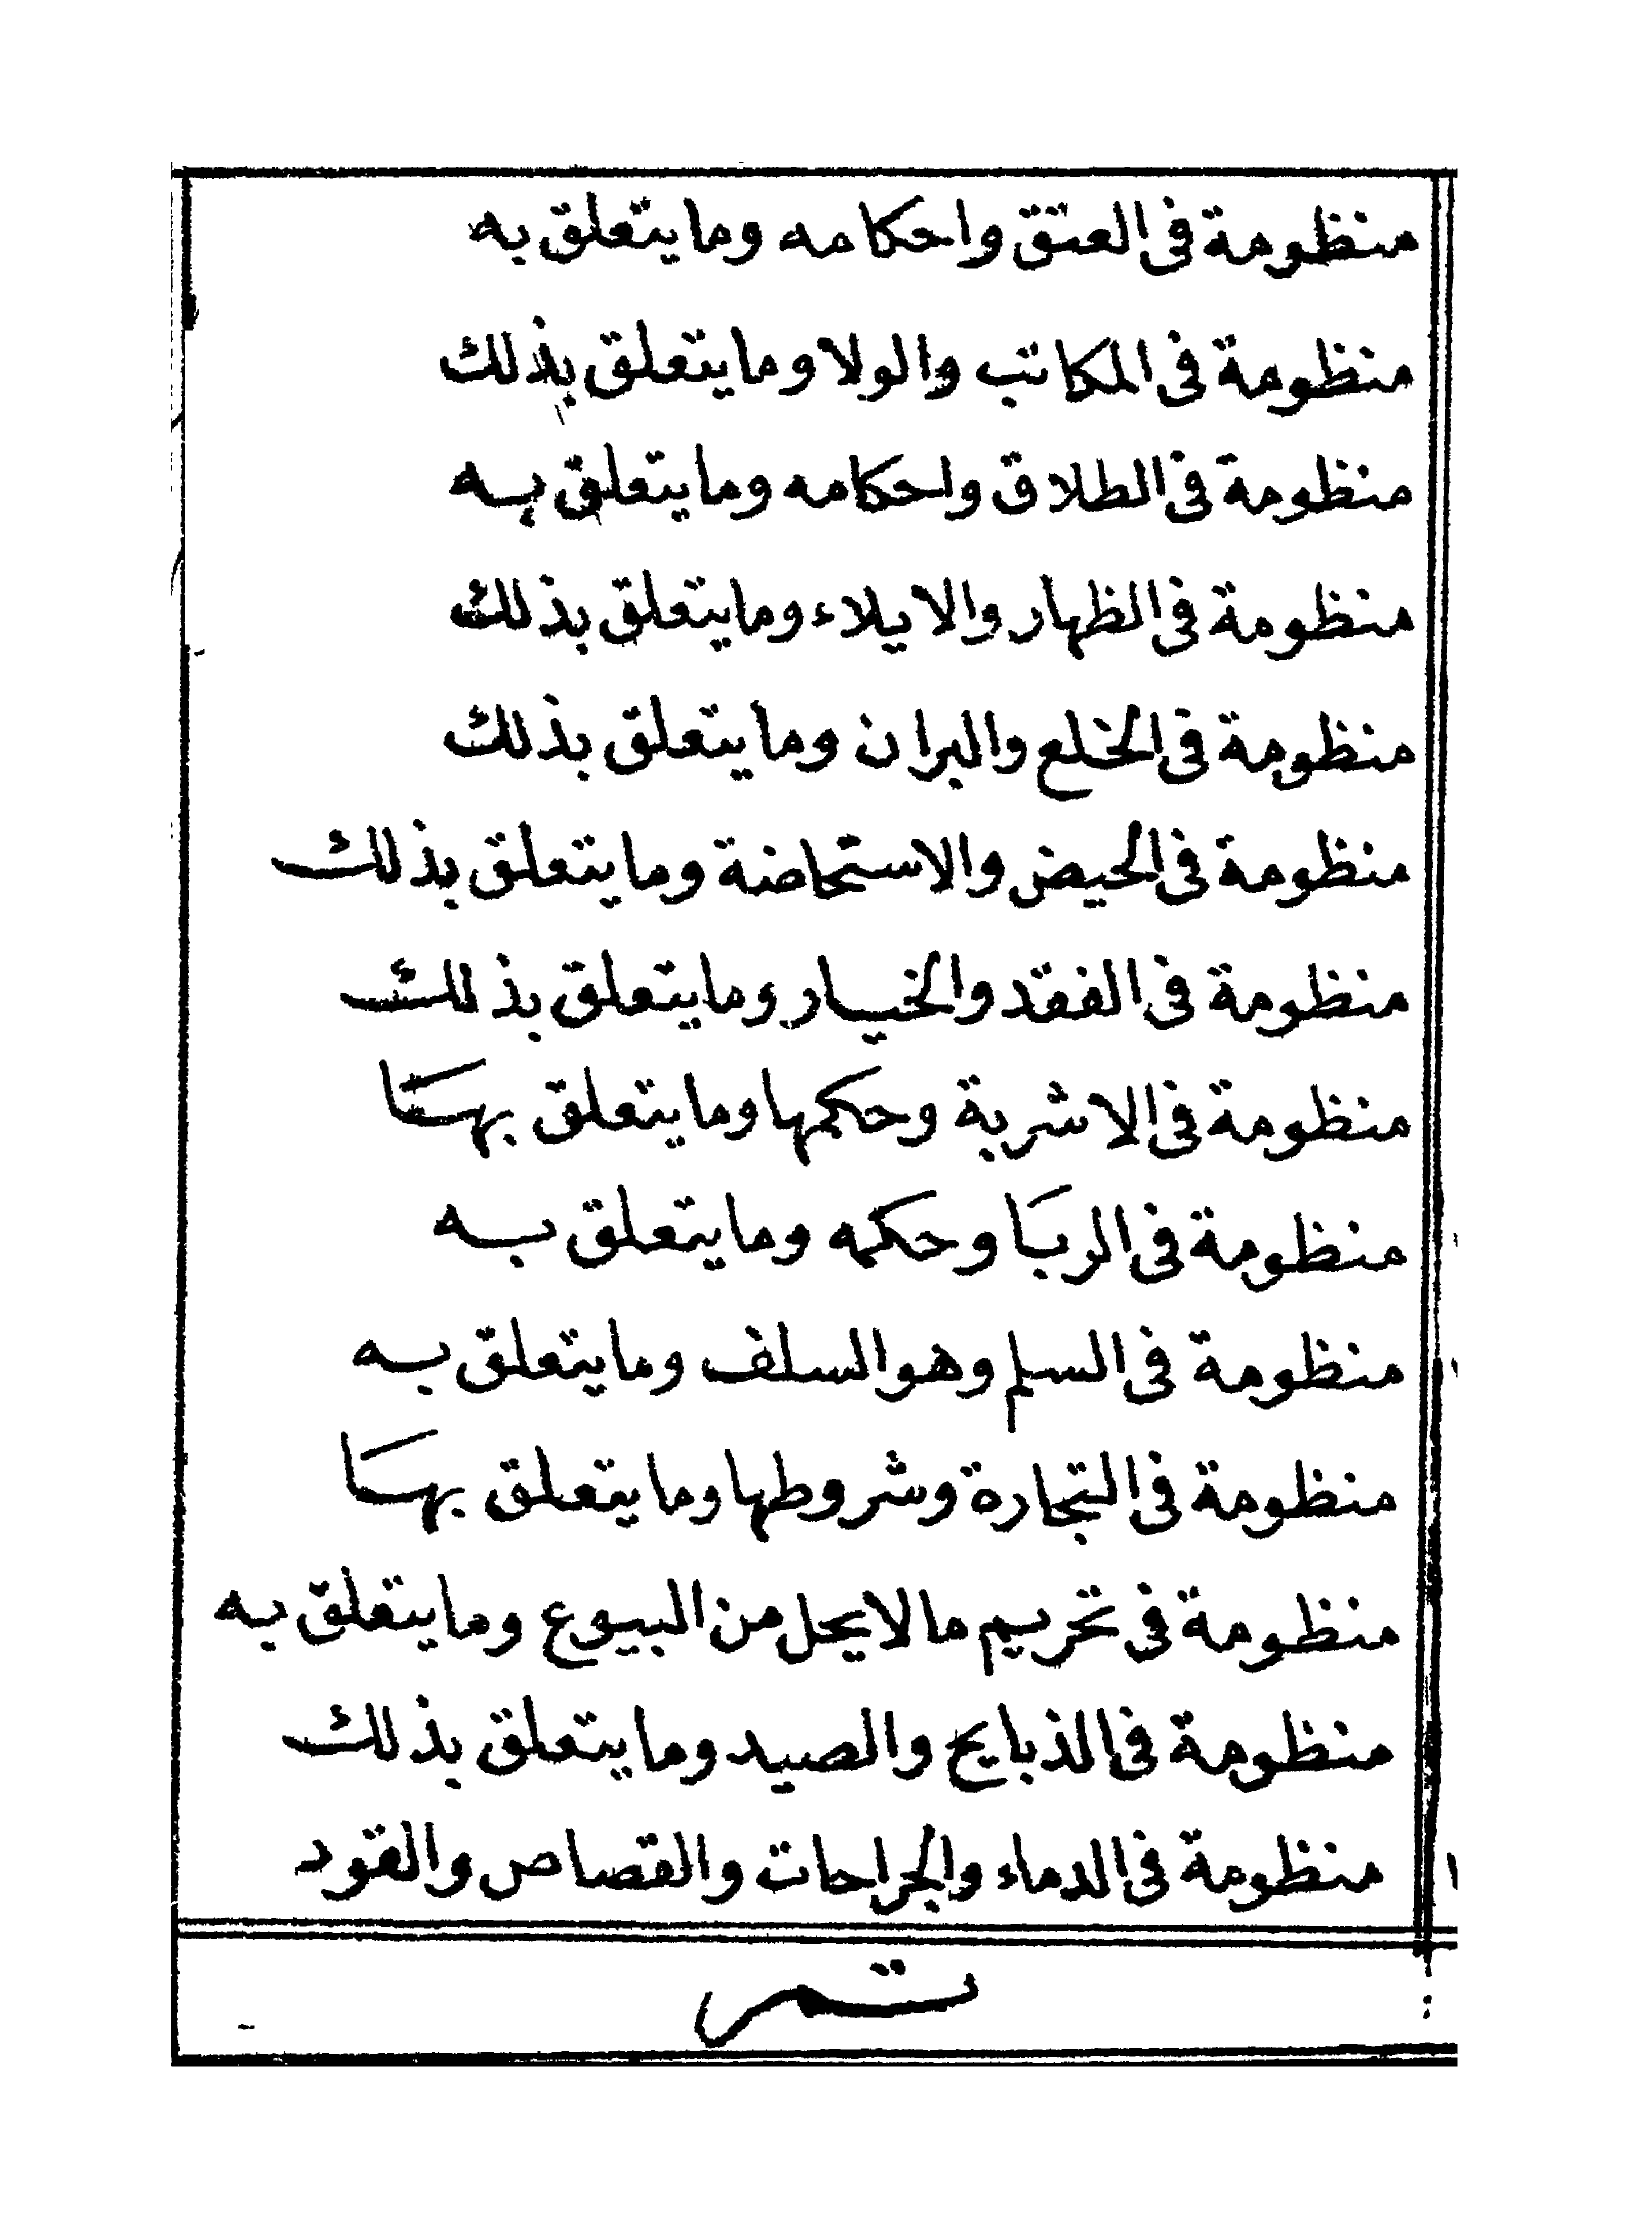 منظومة فى العتق واحكامه ومايتعلق به
منظومة فى المكاتب والولا ومايتعلق بذلك
منظومة فى الطلاق واحكامه ومايتعلق به
منظومة فى الظهار والايلاء ومايتعلق بذلك
منظومة فى الخلع والبران ومايتعلق بذلك
منظومة فى الحيض والاستحاضة ومايتعلق بذلك
منظومة فى الفقد والخيار ومايتعلق بذلك
منظومة فى الاشربة وحكمها ومايتعلق بها
منظومة فى الربا وحكمه ومايتعلق به
منظومة فى السلم وهو السلف ومايتعلق به
منظومة فى التجارة وشروطها ومايتعلق بها
منظومة فى تحريم مالايحل من البيوع ومايتعلق به
منظومة فى الذبايح والصيد ومايتعلق بذلك
منظومة فى الدماء والجراحات والقصاص والقود
تمر